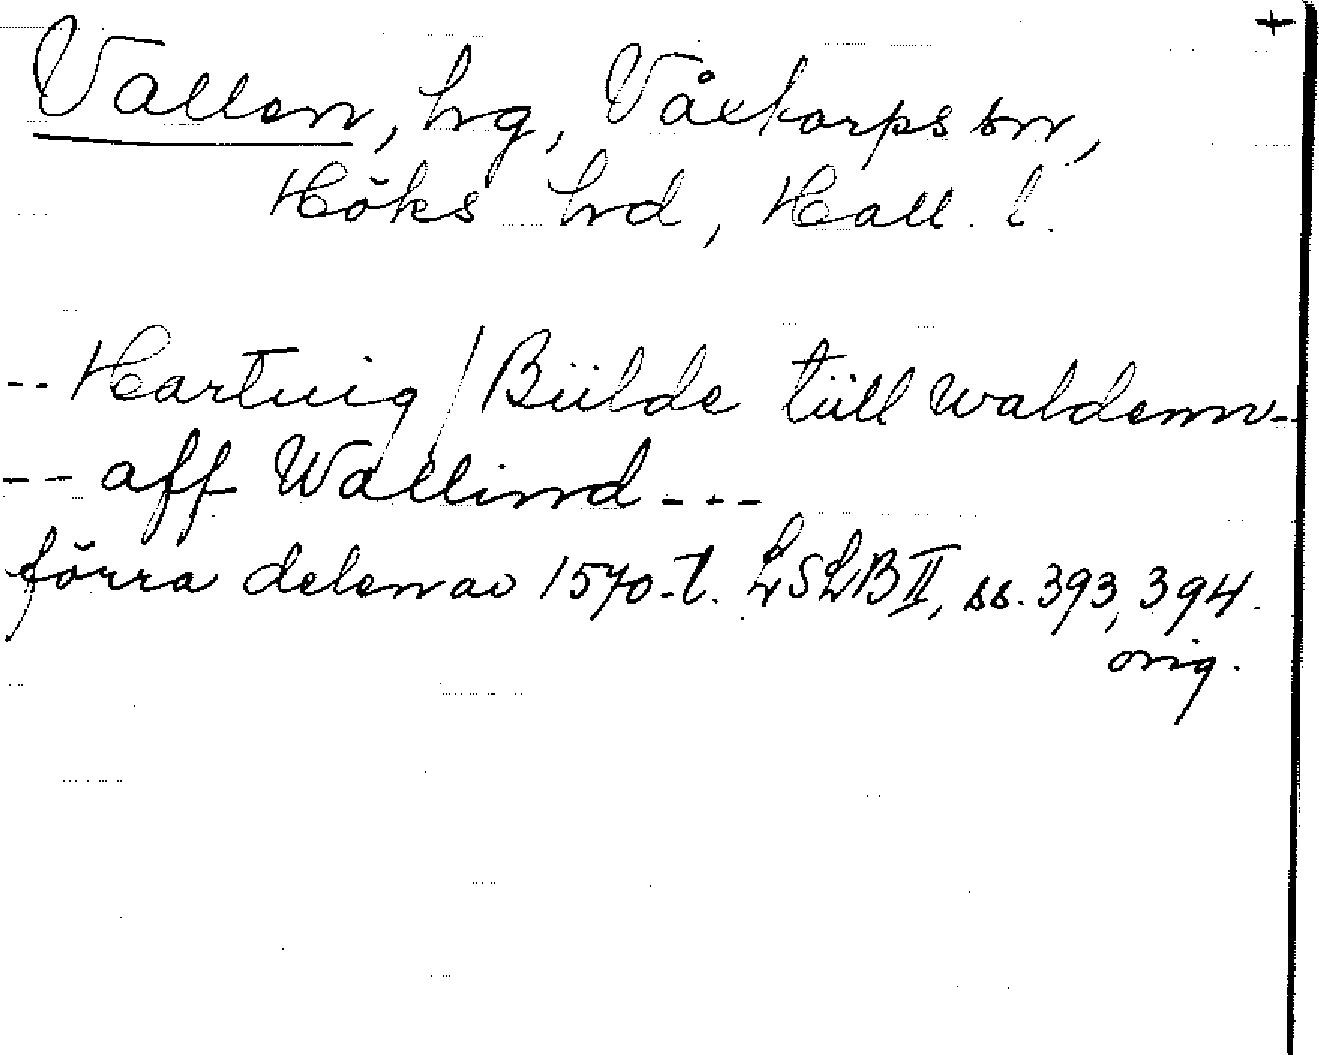 +
Vallen, hg, Våxtorps sn,
Höks hd, Hall. l.
-- Hartuig / Biilde tiill waldenn--
-- aff Wallind ---
förra delen av 1570-t. LSLB II, ss. 393, 394.
orig.